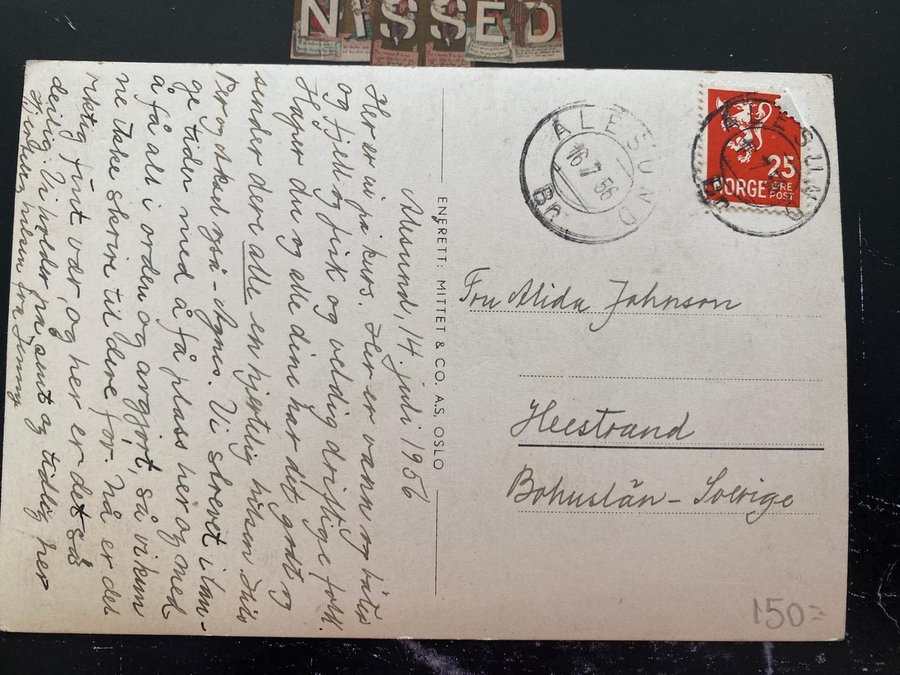 NISSED
Ålesund, 14. juli 1956
Her er vi på kurs. Her er vann og båter
og fjell og fisk og veldig driftige folk.
Håper du og alle dine har det godt og
sender dere alle en hjertelig hilsen. Hils
også – Agnes. Vi strevet i lan-
ge tider med å få plass her og med
å få alt i orden og avgjort, så vi kun
ne ikke skrive til dere før. Nå er det
riktig fint vær, og her er det så
deilig. Vi holder på sent og tidlig her
Hjertelig hilsen fra Jenny
ENERETT: MITTET & CO. A.S, OSLO
ÅLESUND
16.7.56
NORGE
25
ØRE
POST
ÅLESUND
Fru Alida Johnson
Heestrand
Bohuslän - Sverige
150=